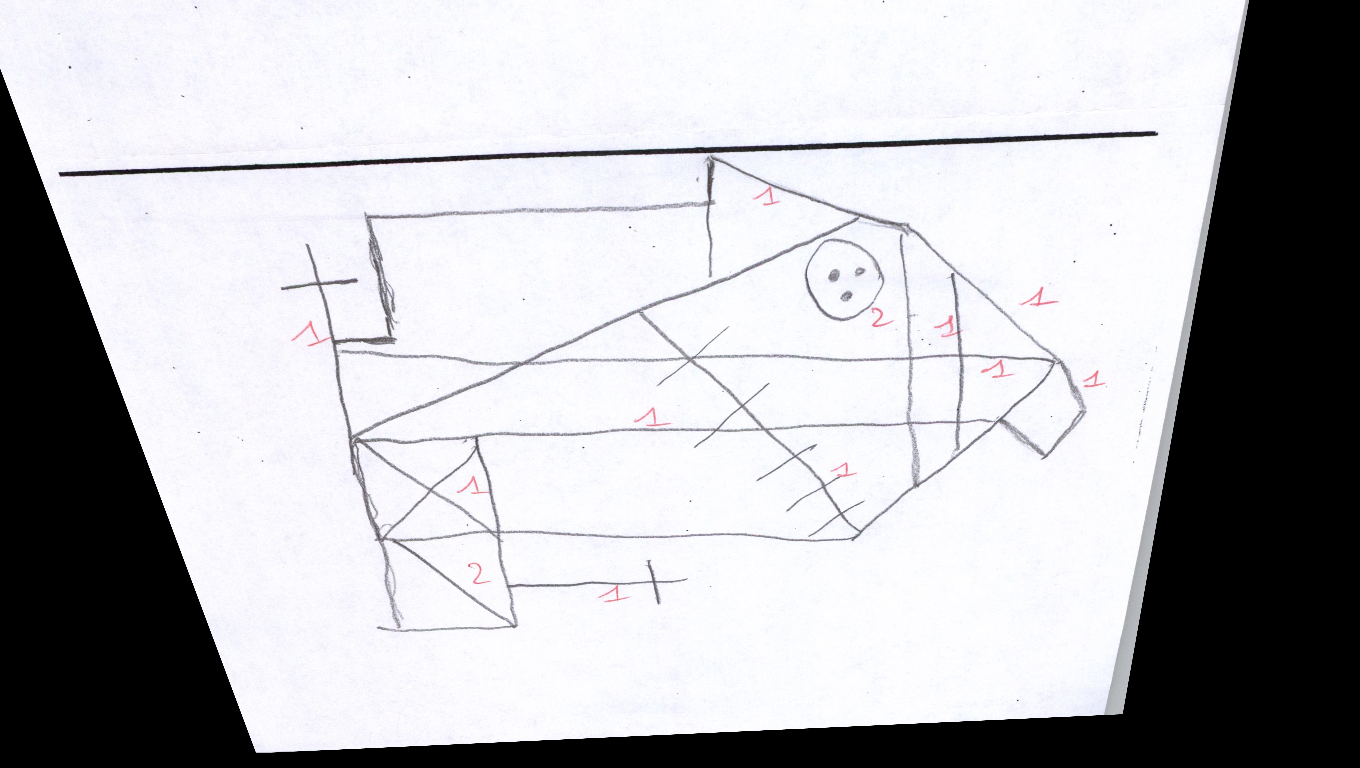 1
1
1
2
1
1
1
1
1
1
1
2
1